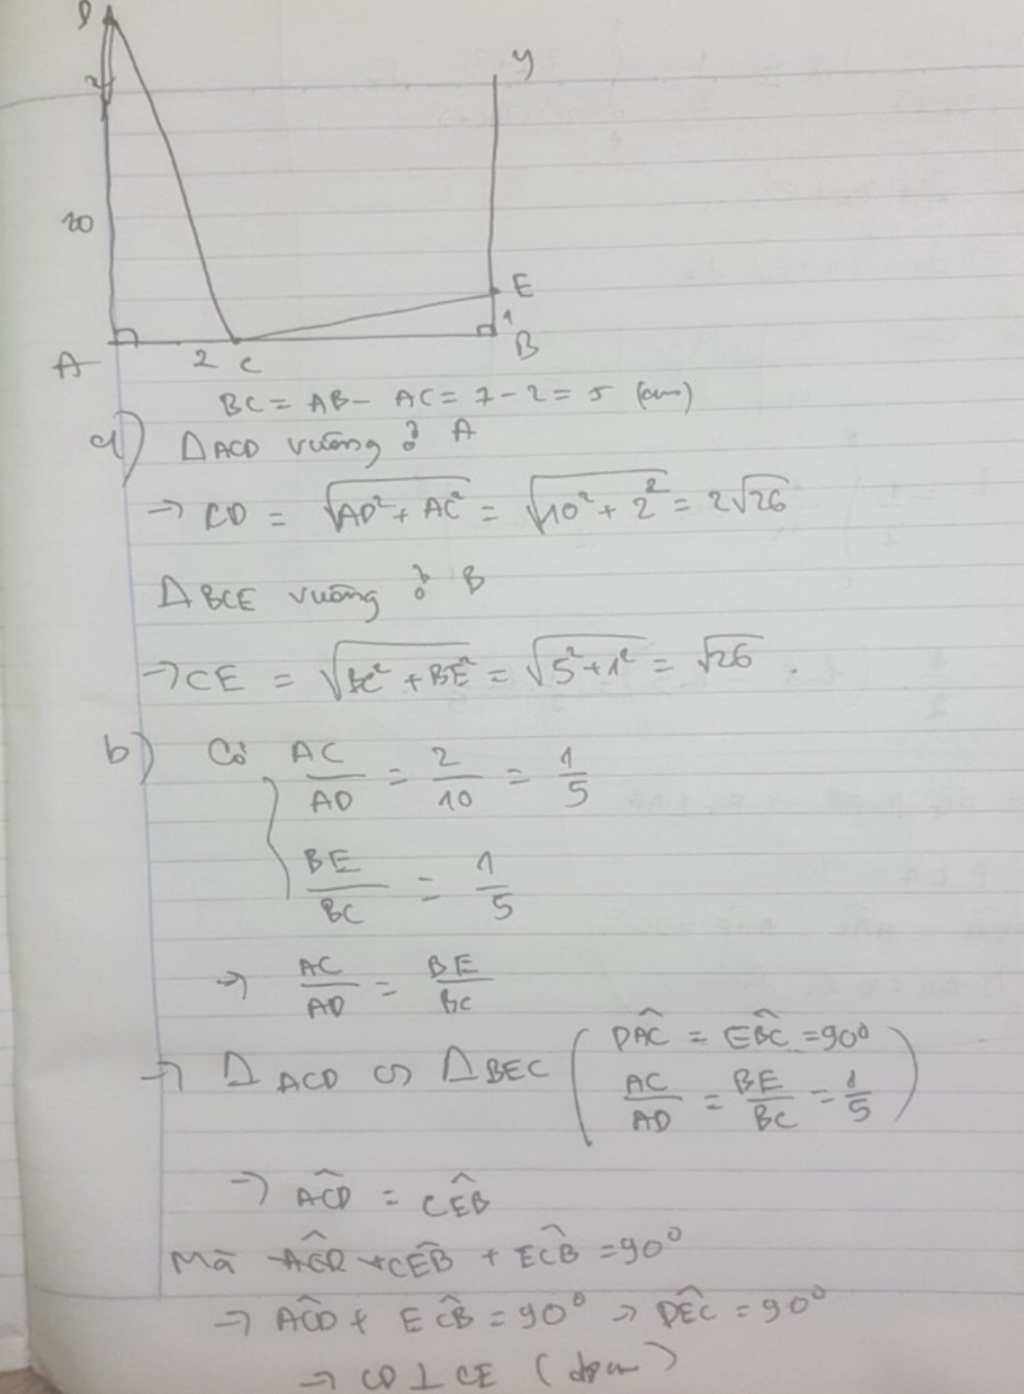 D
x
y
10
E
1
A 2 C B
BC = AB - AC = 7 - 2 = 5 (cm)
a) ΔACD vuông ở A
→ CD = √(AD² + AC²) = √(10² + 2²) = 2√26
ΔBCE vuông ở B
→ CE = √(BC² + BE²) = √(5² + 1²) = √26.
b) Có { AC/AD = 2/10 = 1/5
BE/BC = 1/5
→ AC/AD = BE/BC
→ ΔACD ∽ ΔBEC ( DAC^ = EBC^ = 90°
AC/AD = BE/BC = 1/5 )
→ ACD^ = CEB^
Mà CEB^ + ECB^ = 90°
→ ACD^ + ECB^ = 90° → DEC^ = 90°
→ CD ⊥ CE (đpcm)